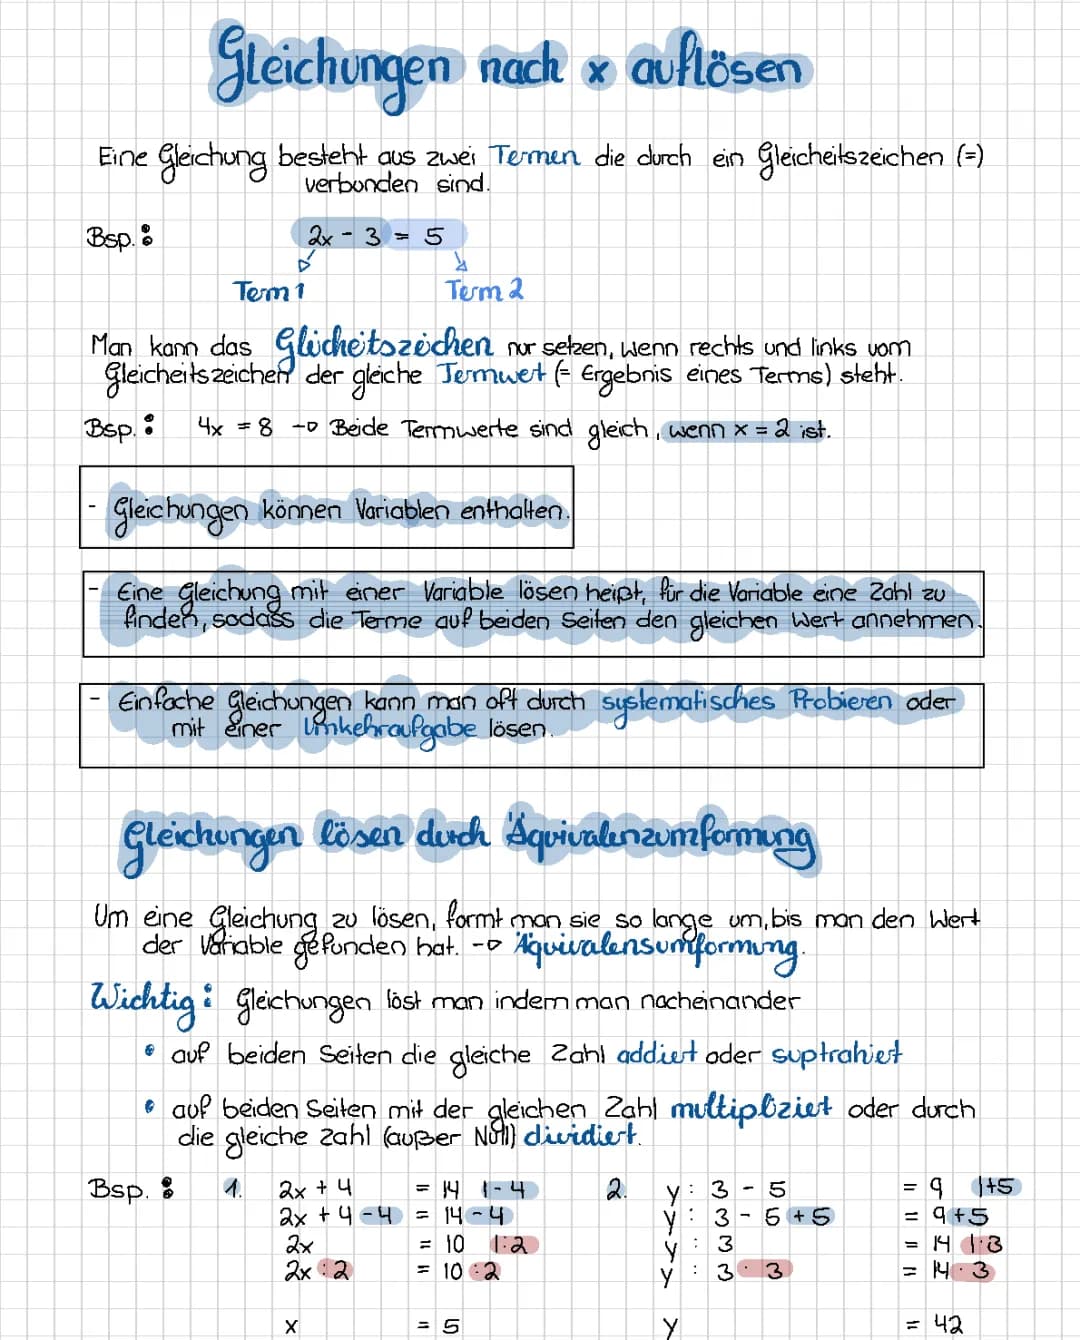 Gleichungen nach x auflösen
Eine Gleichung besteht aus zwei Termen die durch ein Gleicheitszeichen (=)
verbunden sind.
Bsp.: 2x - 3 = 5
Term 1 Term 2
Man kann das Glicheitszeichen nur setzen, wenn rechts und links vom
Gleicheitszeichen der gleiche Termwert (= Ergebnis eines Terms) steht.
Bsp.: 4x = 8 -> Beide Termwerte sind gleich, wenn x = 2 ist.
- Gleichungen können Variablen enthalten.
- Eine Gleichung mit einer Variable lösen heißt, für die Variable eine Zahl zu
finden, sodass die Terme auf beiden Seiten den gleichen Wert annehmen.
- Einfache Gleichungen kann man oft durch systematisches Probieren oder
mit einer Umkehraufgabe lösen.
Gleichungen lösen durch Äquivalenzumformung
Um eine Gleichung zu lösen, formt man sie so lange um, bis man den Wert
der Variable gefunden hat. -> Äquivalensumformung.
Wichtig: Gleichungen löst man indem man nacheinander
• auf beiden Seiten die gleiche Zahl addiert oder suptrahiert
• auf beiden Seiten mit der gleichen Zahl multipliziert oder durch
die gleiche Zahl (außer Null) dividiert.
Bsp.: 1. 2x + 4 = 14 |-4 2. y : 3 - 5 = 9 |+5
2x + 4 - 4 = 14 - 4 y : 3 - 5 + 5 = 9 + 5
2x = 10 |:2 y : 3 = 14 |·3
2x :2 = 10 :2 y : 3 · 3 = 14 · 3
x = 5 y = 42